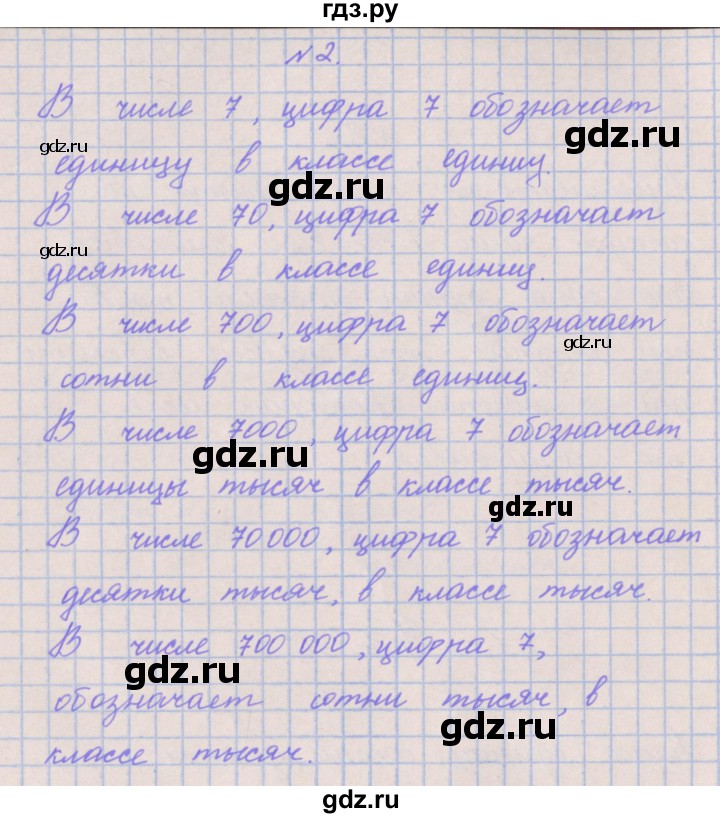 гдз.ру
№2.
В числе 7, цифра 7 обозначает
gdz.ru
gdz.ru
единицу в классе единиц.
gdz.ru
В числе 70, цифра 7 обозначает
gdz.ru
десятки в классе единиц.
В числе 700, цифра 7 обозначает
gdz.ru
сотни в классе единиц.
В числе 7000, цифра 7 обозначает
gdz.ru
единицы тысяч в классе тысяч.
gdz.ru
В числе 70 000, цифра 7 обозначает
десятки тысяч, в классе тысяч.
В числе 700 000, цифра 7,
gdz.ru
обозначает сотни тысяч, в
gdz.ru
классе тысяч.
gdz.ru